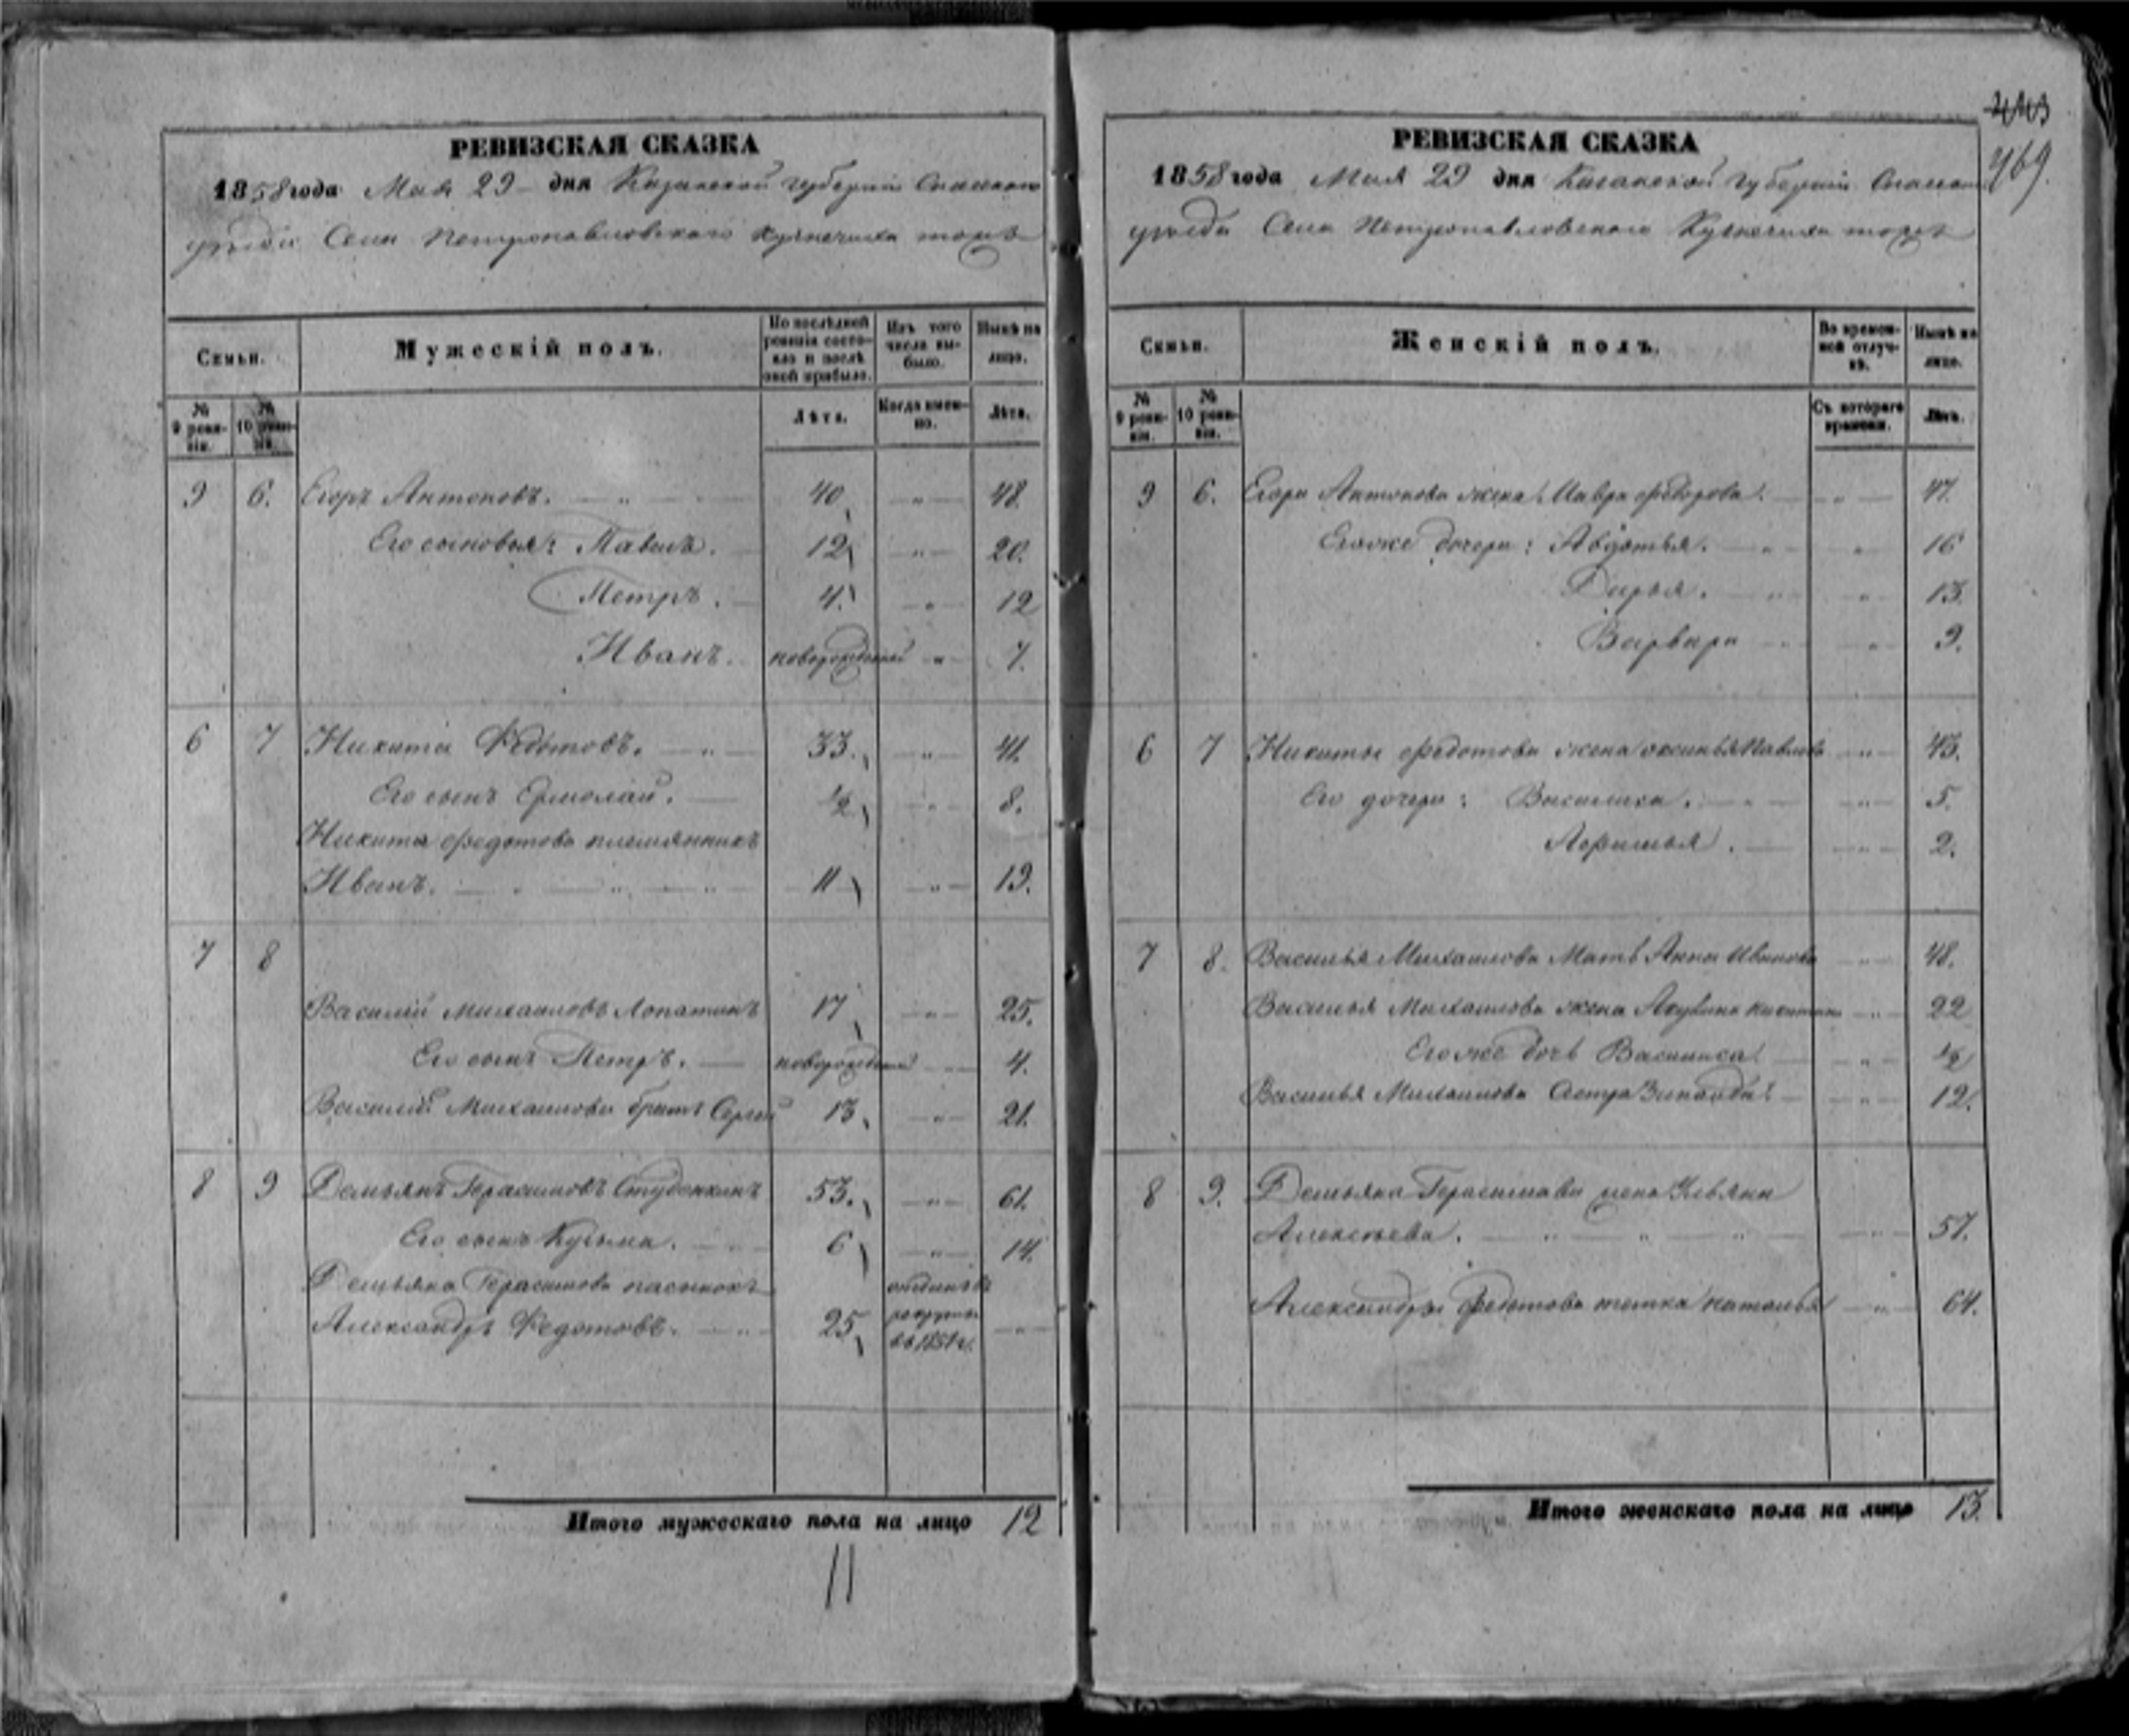 РЕВИЗСКАЯ СКАЗКА
1858 года Мая 29 дня Казанской губерніи Спаскаго
уѣзда Села Петропавловскаго Кузнечиха тожъ
Семьи.
Мужескій полъ.
По послѣдней ревизіи состояло и послѣ оной прибыло.
Изъ того числа выбыло.
Нынѣ на лицо.
№ 9 ревизіи.
№ 10 ревизіи.
Лѣта.
Когда именно.
Лѣта.
9 6. Егоръ Антоновъ. — „ — 40 — „ — 48.
Его сыновья: Павелъ. — 12 — „ — 20.
Петръ. — 4. — „ — 12
Иванъ. новорожденный „ — 7.
6 7 Никита Ѳедотовъ. — „ — 33. — „ — 41.
Его сынъ Ермолай. — 1/2 — „ — 8.
Никиты Ѳедотова племянникъ
Иванъ. — „ — „ — „ 11 — „ — 19.
7 8
Василій Михаиловъ Лопатинъ 17 — „ — 25.
Его сынъ Петръ. — новорожденный — „ — 4.
Василія Михаилова братъ Сергей 13. — „ — 21.
8 9 Демьянъ Герасимовъ Студенкинъ 53. — „ — 61.
Его сынъ Кузьма. — „ 6 — „ — 14.
Демьяна Герасимова пасынокъ отданъ въ
Александръ Ѳедотовъ. — „ — 25 рекруты — „ —
въ 1851 г.
Итого мужескаго пола на лицо 12
11
469.
РЕВИЗСКАЯ СКАЗКА
1858 года Мая 29 дня Казанской губерніи Спаскаго
уѣзда Села Петропавловскаго Кузнечиха тожъ
Семьи.
Женскій полъ.
Во временной отлучкѣ.
Нынѣ на лицо.
№ 9 ревизіи.
№ 10 ревизіи.
Съ котораго времени.
Лѣта.
9 6. Егора Антонова жена Мавра Ѳедорова. — „ — 47.
Егоже дочери: Авдотья. — „ „ 16
Дарья. — „ — „ — 13.
Варвара — „ — „ — 9.
6 7 Никиты Ѳедотова жена Оксинья Павлова — „ — 43.
Его дочери: Василиса. — „ — „ — 5.
2.
7 8. Василья Михаилова Мать Анна Иванова — „ — 48.
Василья Михаилова жена Акулина Никитина — „ — 22
Егоже дочь Василиса — „ — 1/2
Василья Михаилова Сестра Зинаида — „ — 12.
8 9. Демьяна Герасимова жена Ульяна
Алексѣева. — „ — „ — „ — 57.
Александры Ѳедотова тетка Наталья — „ — 64.
Итого женскаго пола на лицо 13.